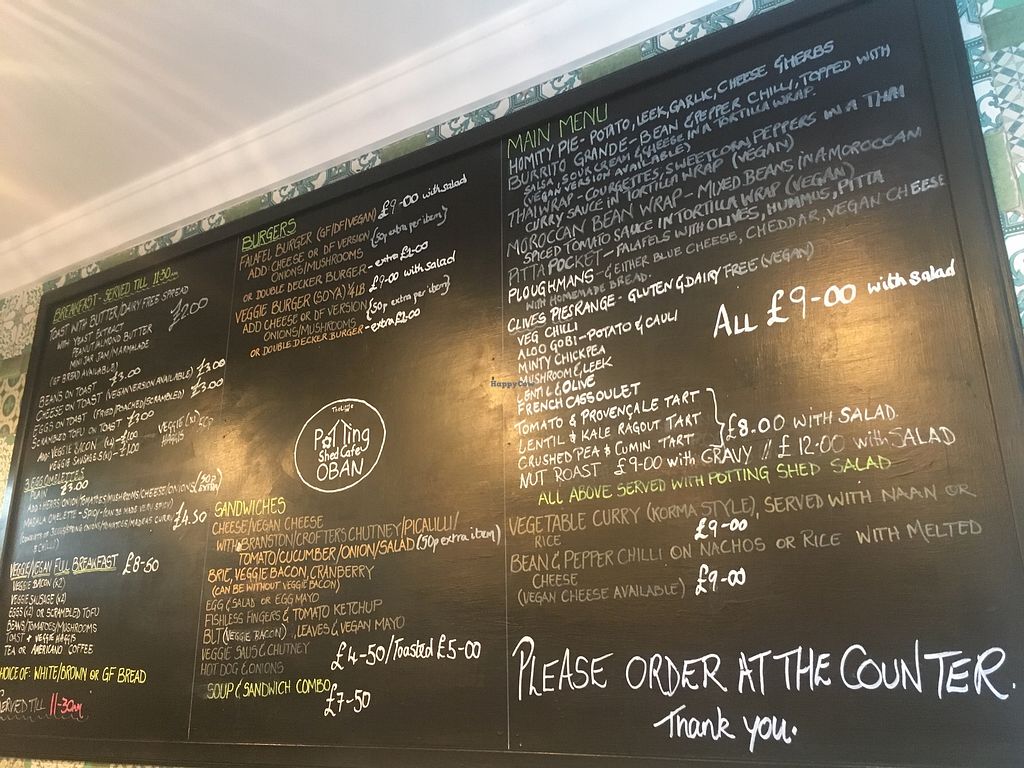 BREAKFAST - SERVED TILL 11:30am
TOAST WITH BUTTER/DAIRY FREE SPREAD
£2.00
WITH YEAST EXTRACT
PEANUT/ALMOND BUTTER
MINI JAR JAM/MARMALADE
(GF BREAD AVAILABLE)
BEANS ON TOAST £3.00
CHEESE ON TOAST (VEGAN VERSION AVAILABLE) £3.00
EGGS ON TOAST (FRIED/POACHED/SCRAMBLED) £3.00
SCRAMBLED TOFU ON TOAST £3.00
ADD: VEGGIE BACON
VEGGIE SAUSAGES
VEGGIE
HAGGIS
3 EGG OMELETTES
PLAIN £3.00
ADD: HERBS/ONION/TOMATOES/MUSHROOMS/CHEESE/ONIONS (50p EXTRA)
MASALA OMELETTE - SPICY (CAN BE MADE VERY SPICY)
£4.50
& CHILLI)
VEGGIE/VEGAN FULL BREAKFAST £8-50
VEGGIE BACON (x2)
VEGGIE SAUSAGE (x2)
EGGS (x2) OR SCRAMBLED TOFU
BEANS/TOMATOES/MUSHROOMS
TOAST & VEGGIE HAGGIS
TEA OR AMERICANO COFFEE
CHOICE OF: WHITE/BROWN OR GF BREAD
SERVED TILL 11-30am
BURGERS
FALAFEL BURGER (GF/DF/VEGAN) £9-00 with salad
ADD CHEESE OR DF VERSION (50p extra per item)
ONIONS/MUSHROOMS
OR DOUBLE DECKER BURGER - extra £2.00
VEGGIE BURGER (SOYA) 1/4LB £9-00 with salad
ADD CHEESE OR DF VERSION (50p extra per item)
ONIONS/MUSHROOMS
OR DOUBLE DECKER BURGER - extra £2.00
The Little
Potting
Shed Cafe
OBAN
SANDWICHES
CHEESE/VEGAN CHEESE
WITH BRANSTON/CROFTERS CHUTNEY/PICALILLI/
TOMATO/CUCUMBER/ONION/SALAD (50p extra per item)
BRIE, VEGGIE BACON, CRANBERRY
(CAN BE WITHOUT VEGGIE BACON)
EGG & SALAD OR EGG MAYO
FISHLESS FINGERS & TOMATO KETCHUP
BLT (VEGGIE BACON), LEAVES & VEGAN MAYO
VEGGIE SAUS & CHUTNEY
HOT DOG & ONIONS
£4-50/Toasted £5-00
SOUP & SANDWICH COMBO
£7-50
MAIN MENU
HOMITY PIE - POTATO, LEEK, GARLIC, CHEESE & HERBS
BURRITO GRANDE - BEAN & PEPPER CHILLI, TOPPED WITH
SALSA, SOUR CREAM & CHEESE IN A TORTILLA WRAP.
(VEGAN VERSION AVAILABLE)
THAI WRAP - COURGETTES, SWEETCORN, PEPPERS IN A THAI
CURRY SAUCE IN TORTILLA WRAP (VEGAN)
MOROCCAN BEAN WRAP - MIXED BEANS IN A MOROCCAN
SPICED TOMATO SAUCE IN TORTILLA WRAP (VEGAN)
PITTA POCKET - FALAFELS WITH OLIVES, HUMMUS, PITTA
PLOUGHMANS - EITHER BLUE CHEESE, CHEDDAR, VEGAN CHEESE
WITH HOMEMADE BREAD.
CLIVES PIES RANGE - GLUTEN & DAIRY FREE (VEGAN)
VEG CHILLI
ALOO GOBI - POTATO & CAULI
MINTY CHICKPEA
MUSHROOM & LEEK
LENTIL & OLIVE
FRENCH CASSOULET
ALL £9-00 with salad
TOMATO & PROVENÇALE TART
LENTIL & KALE RAGOUT TART
CRUSHED PEA & CUMIN TART
£8.00 WITH SALAD.
NUT ROAST £9-00 with GRAVY // £12-00 with SALAD
ALL ABOVE SERVED WITH POTTING SHED SALAD
VEGETABLE CURRY (KORMA STYLE), SERVED WITH NAAN OR
RICE £9-00
BEAN & PEPPER CHILLI ON NACHOS OR RICE WITH MELTED
CHEESE
(VEGAN CHEESE AVAILABLE) £9-00
PLEASE ORDER AT THE COUNTER.
Thank you.
HappyCow